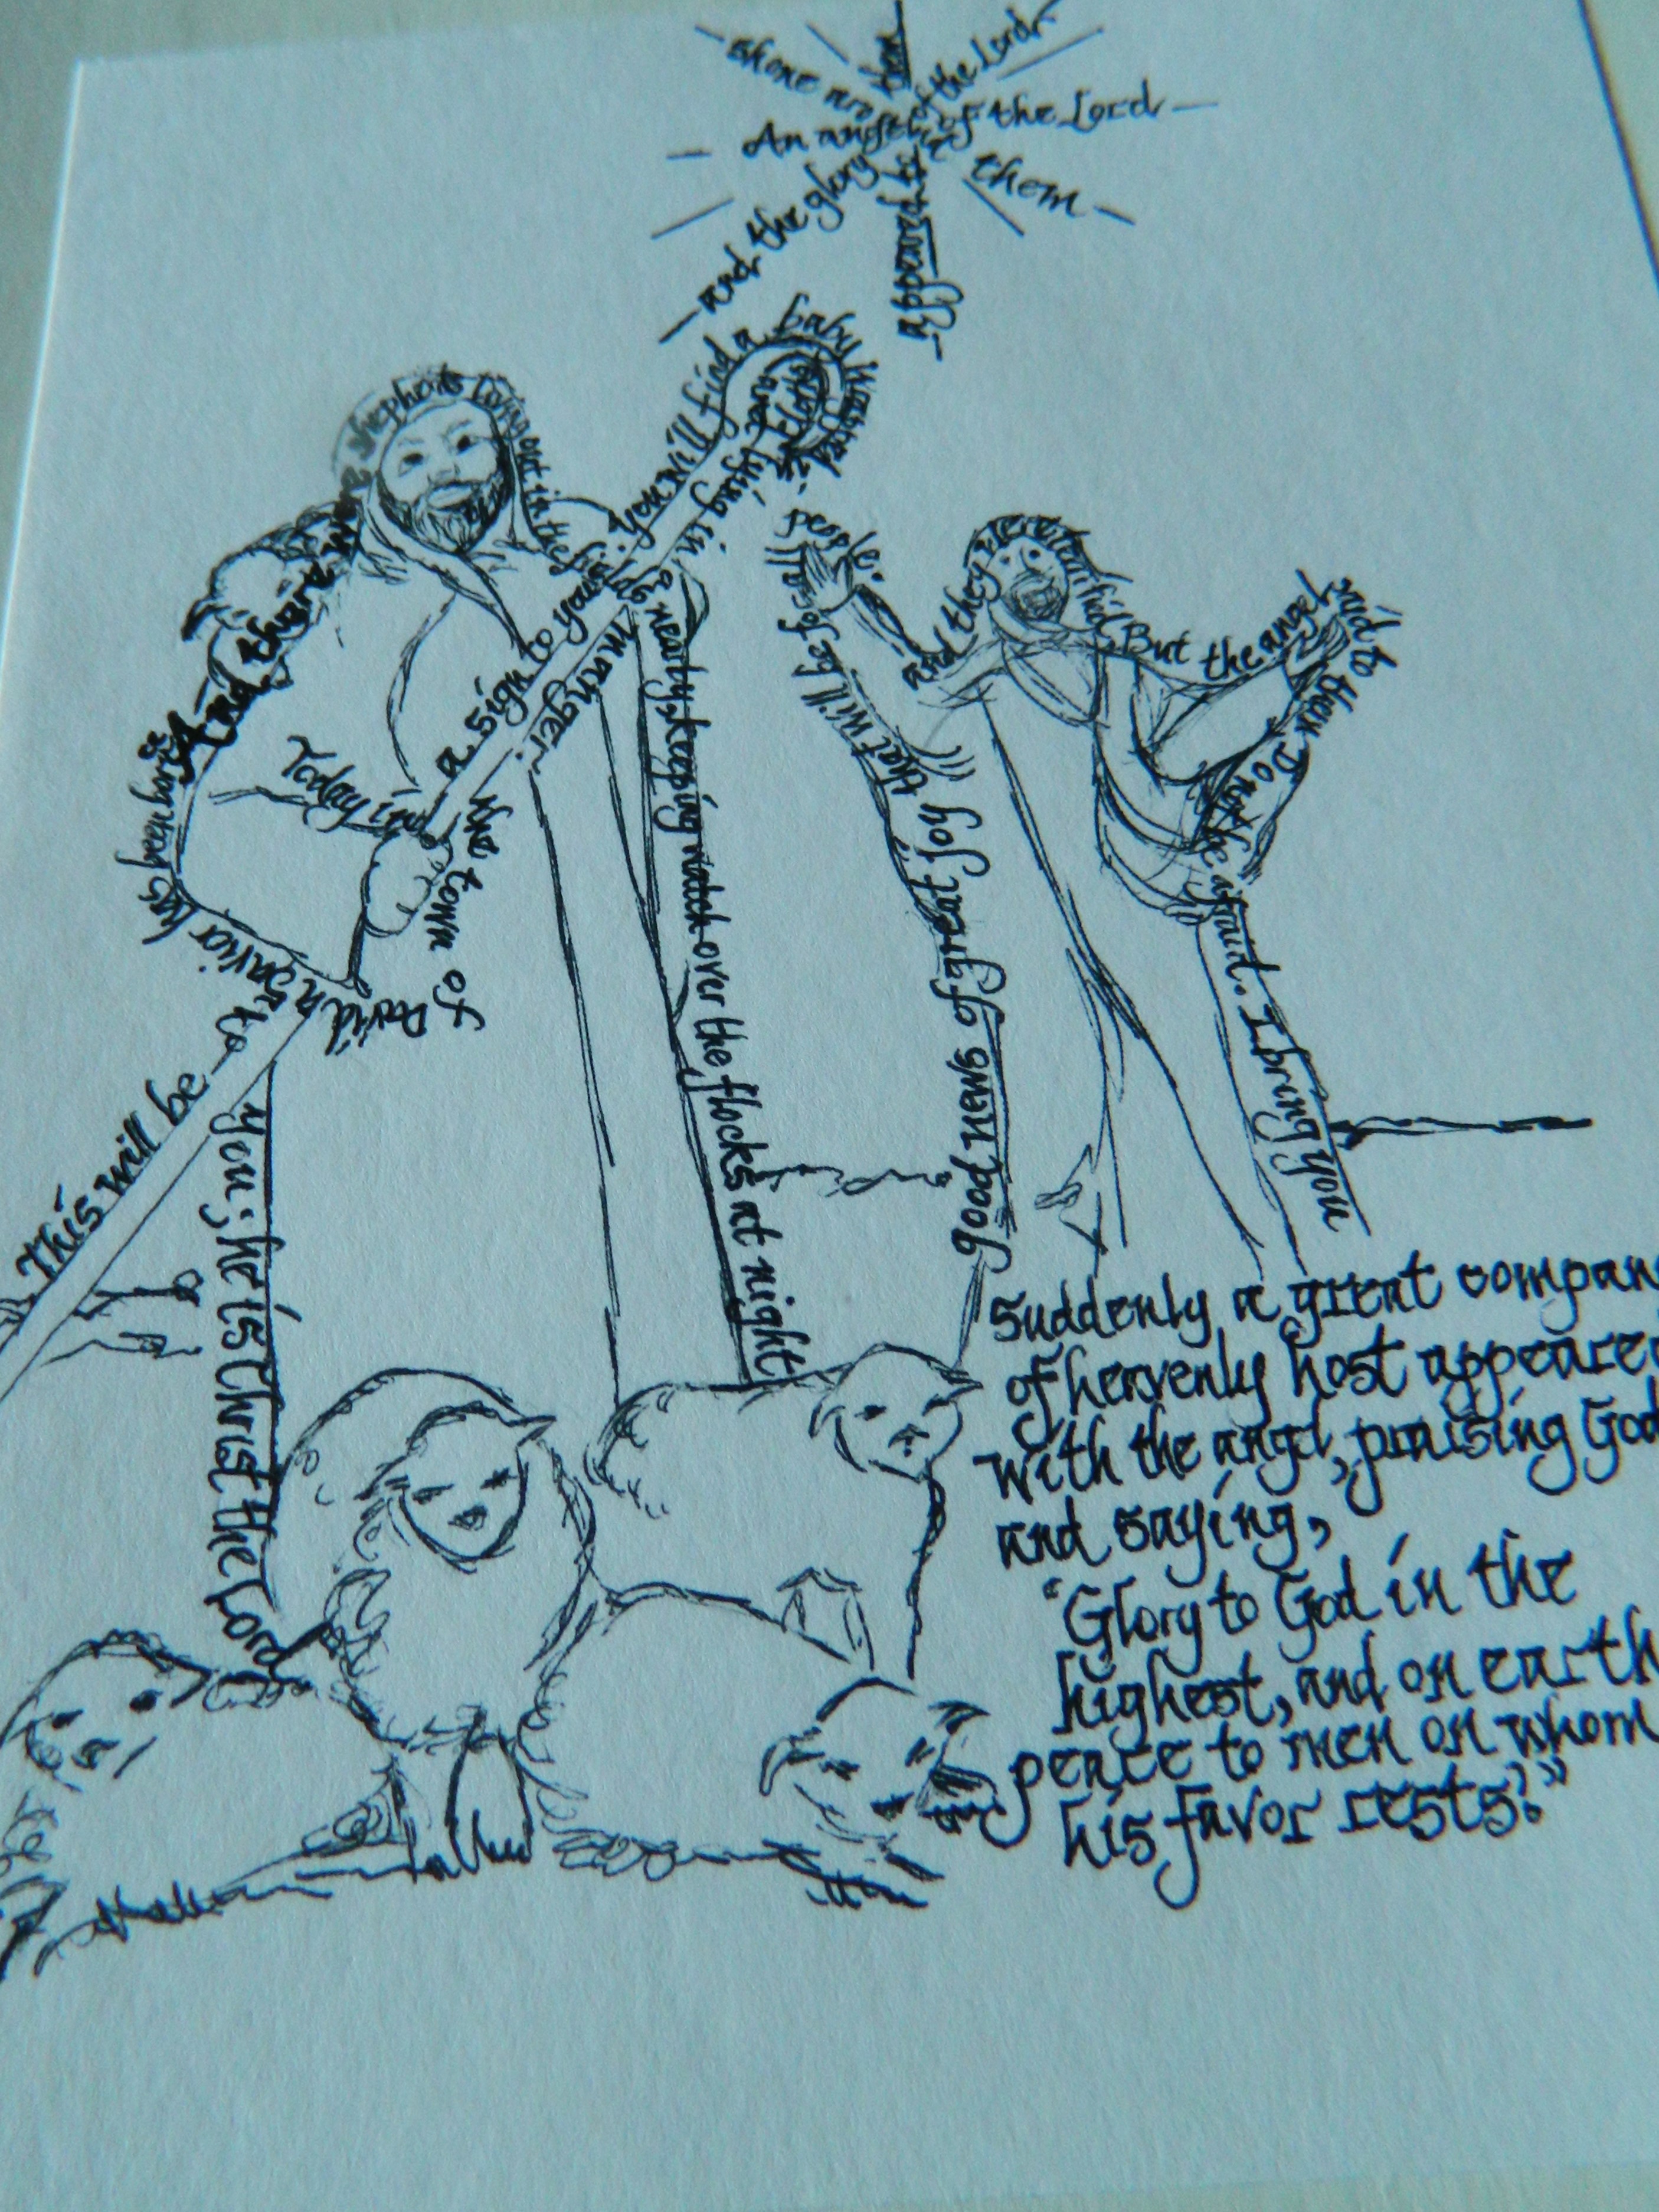 And there were shepherds living out in the fields nearby, keeping watch over the flocks at night
An angel of the Lord
appeared to
them
and the glory of the Lord
shone aro
them
and they were terrified. But the angel said to them, Do not be afraid. I bring you
good news of great joy that will be for all
people.
Today in
the town of
David
a Savior has been born to
you; he is Christ the Lord
This will be
a sign to you:
you will find a baby wrapped
and lying in
a manger.
Suddenly a great compan
of heavenly host appeare
with the angel, praising God
and saying,
"Glory to God in the
highest, and on earth
peace to men on whom
his favor rests."